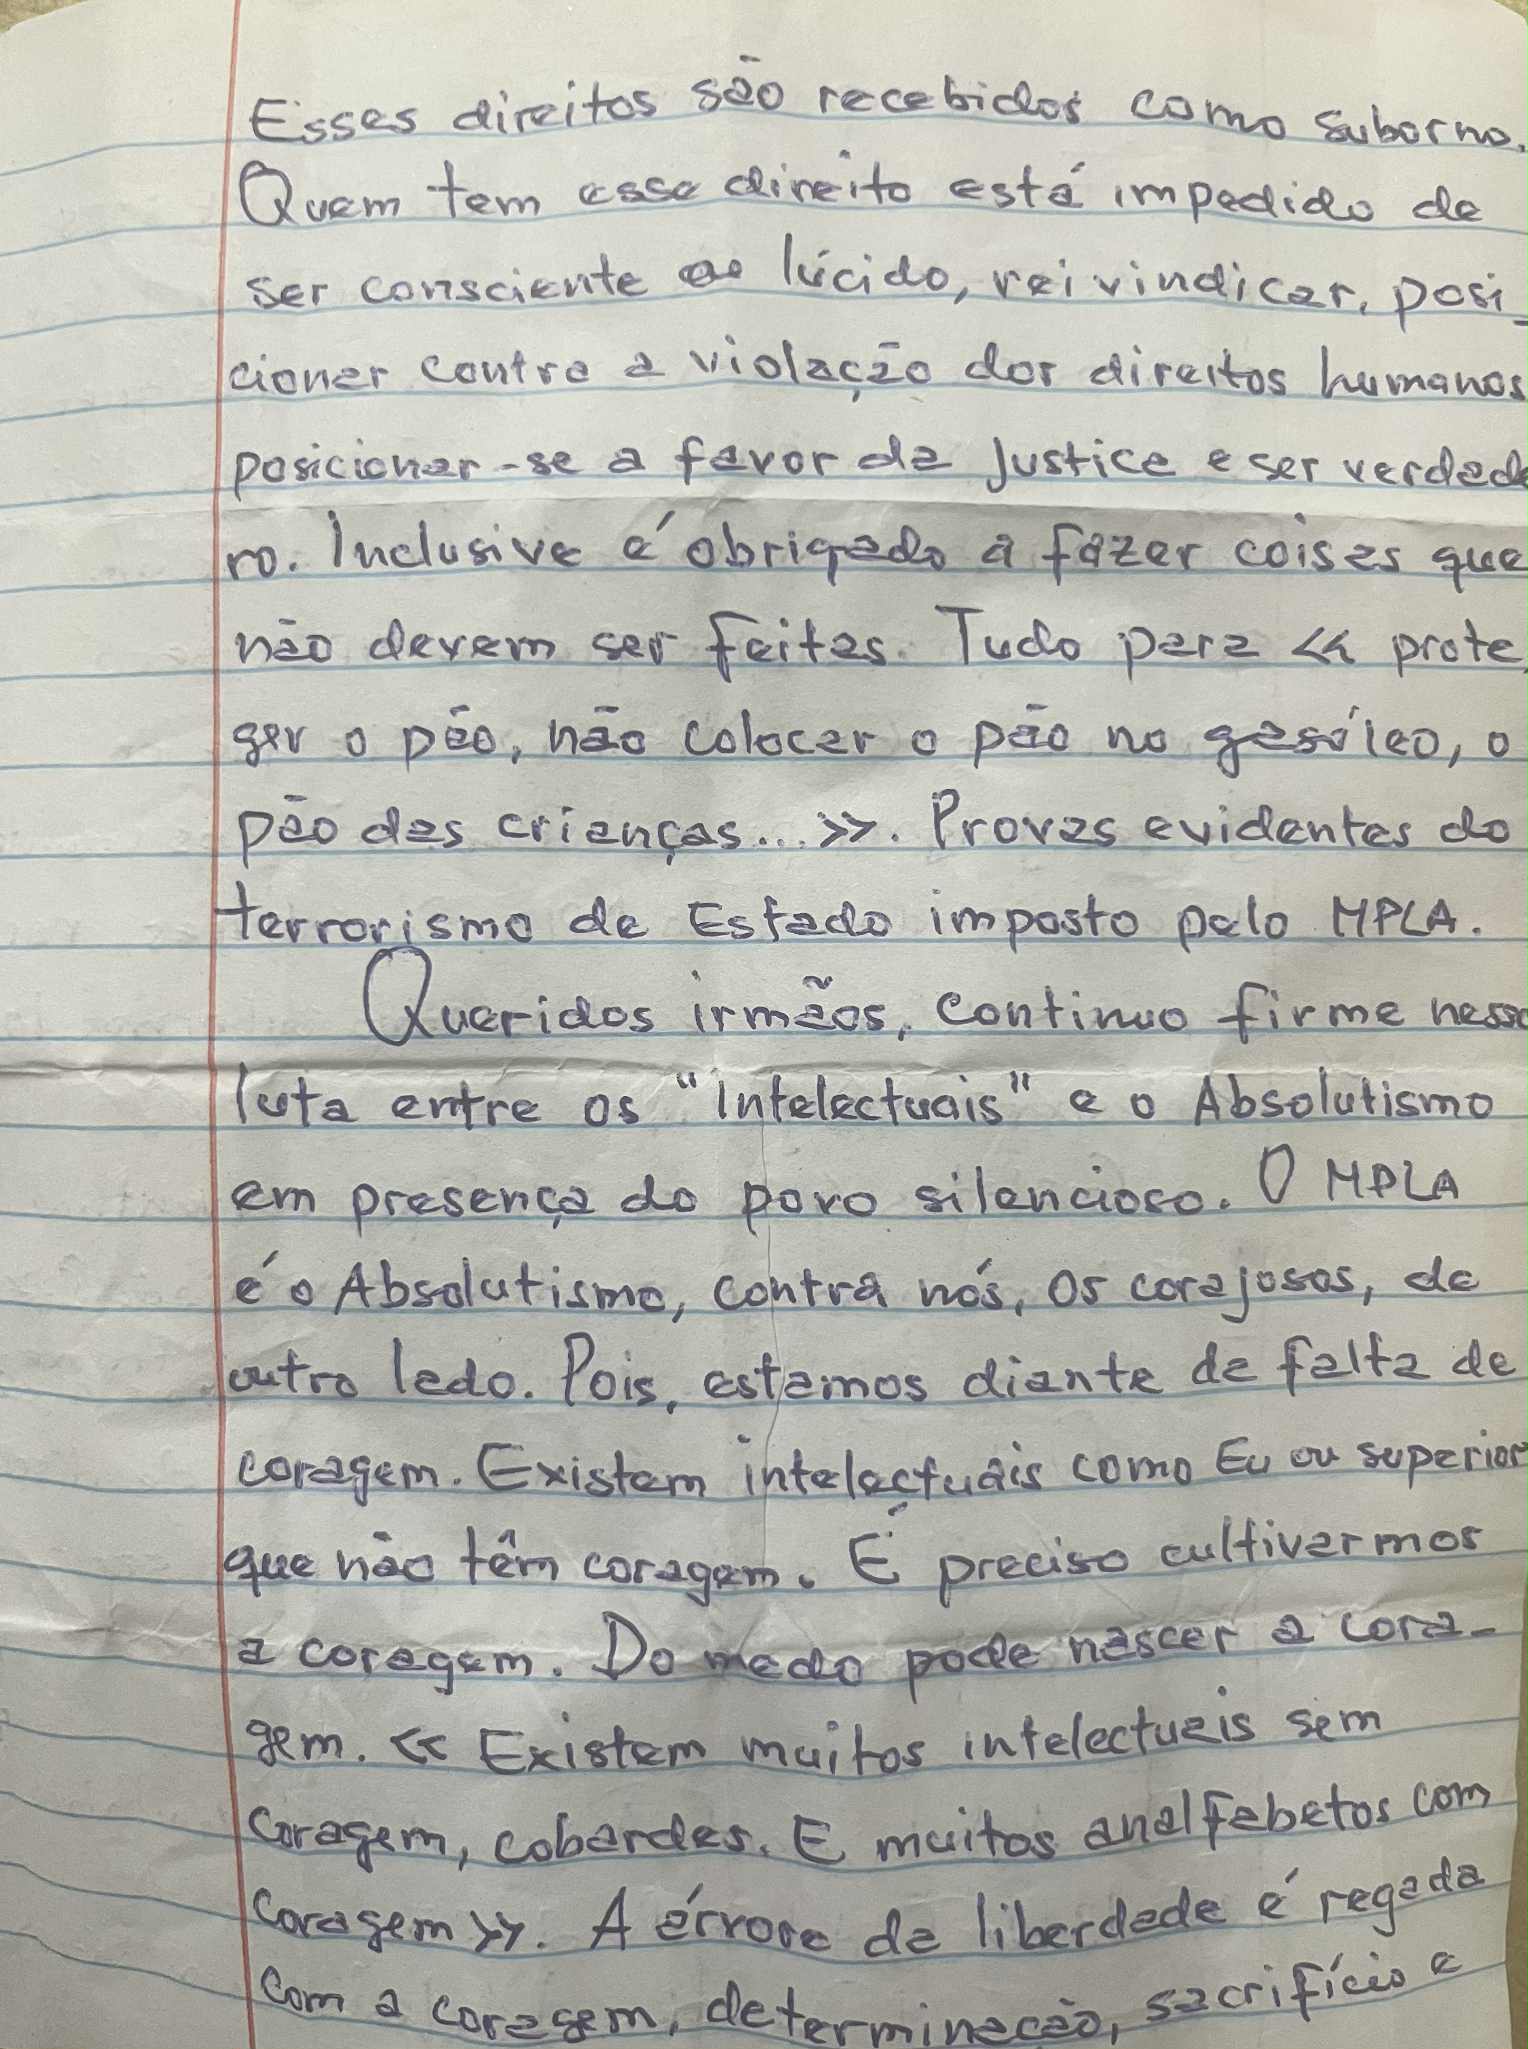 Esses direitos são recebidos como suborno.
Quem tem esse direito está impedido de
ser consciente lúcido, reivindicar, posi-
cionar contra a violação dos direitos humanos
posicionar-se a favor da justiça e ser verdade
ro. Inclusive é obrigado a fazer coisas que
não devem ser feitas. Tudo para << prote.
ger o pão, não colocar o pão no gasóleo, o
pão das crianças...>>. Provas evidentes do
terrorismo de Estado imposto pelo MPLA.
Queridos irmãos, continuo firme nessa
luta entre os "Intelectuais" e o Absolutismo
em presença do povo silencioso. O MPLA
é o Absolutismo, contra nós, os corajosos, do
outro lado. Pois, estamos diante da falta de
coragem. Existem intelectuais como Eu ou superior
que não têm coragem. É preciso cultivarmos
a coragem. Do medo pode nascer a cora-
gem. << Existem muitos intelectuais sem
coragem, cobardes. E muitos analfabetos com
coragem >>. A érvore da liberdade é regada
com a coragem, determinação, sacrifício e